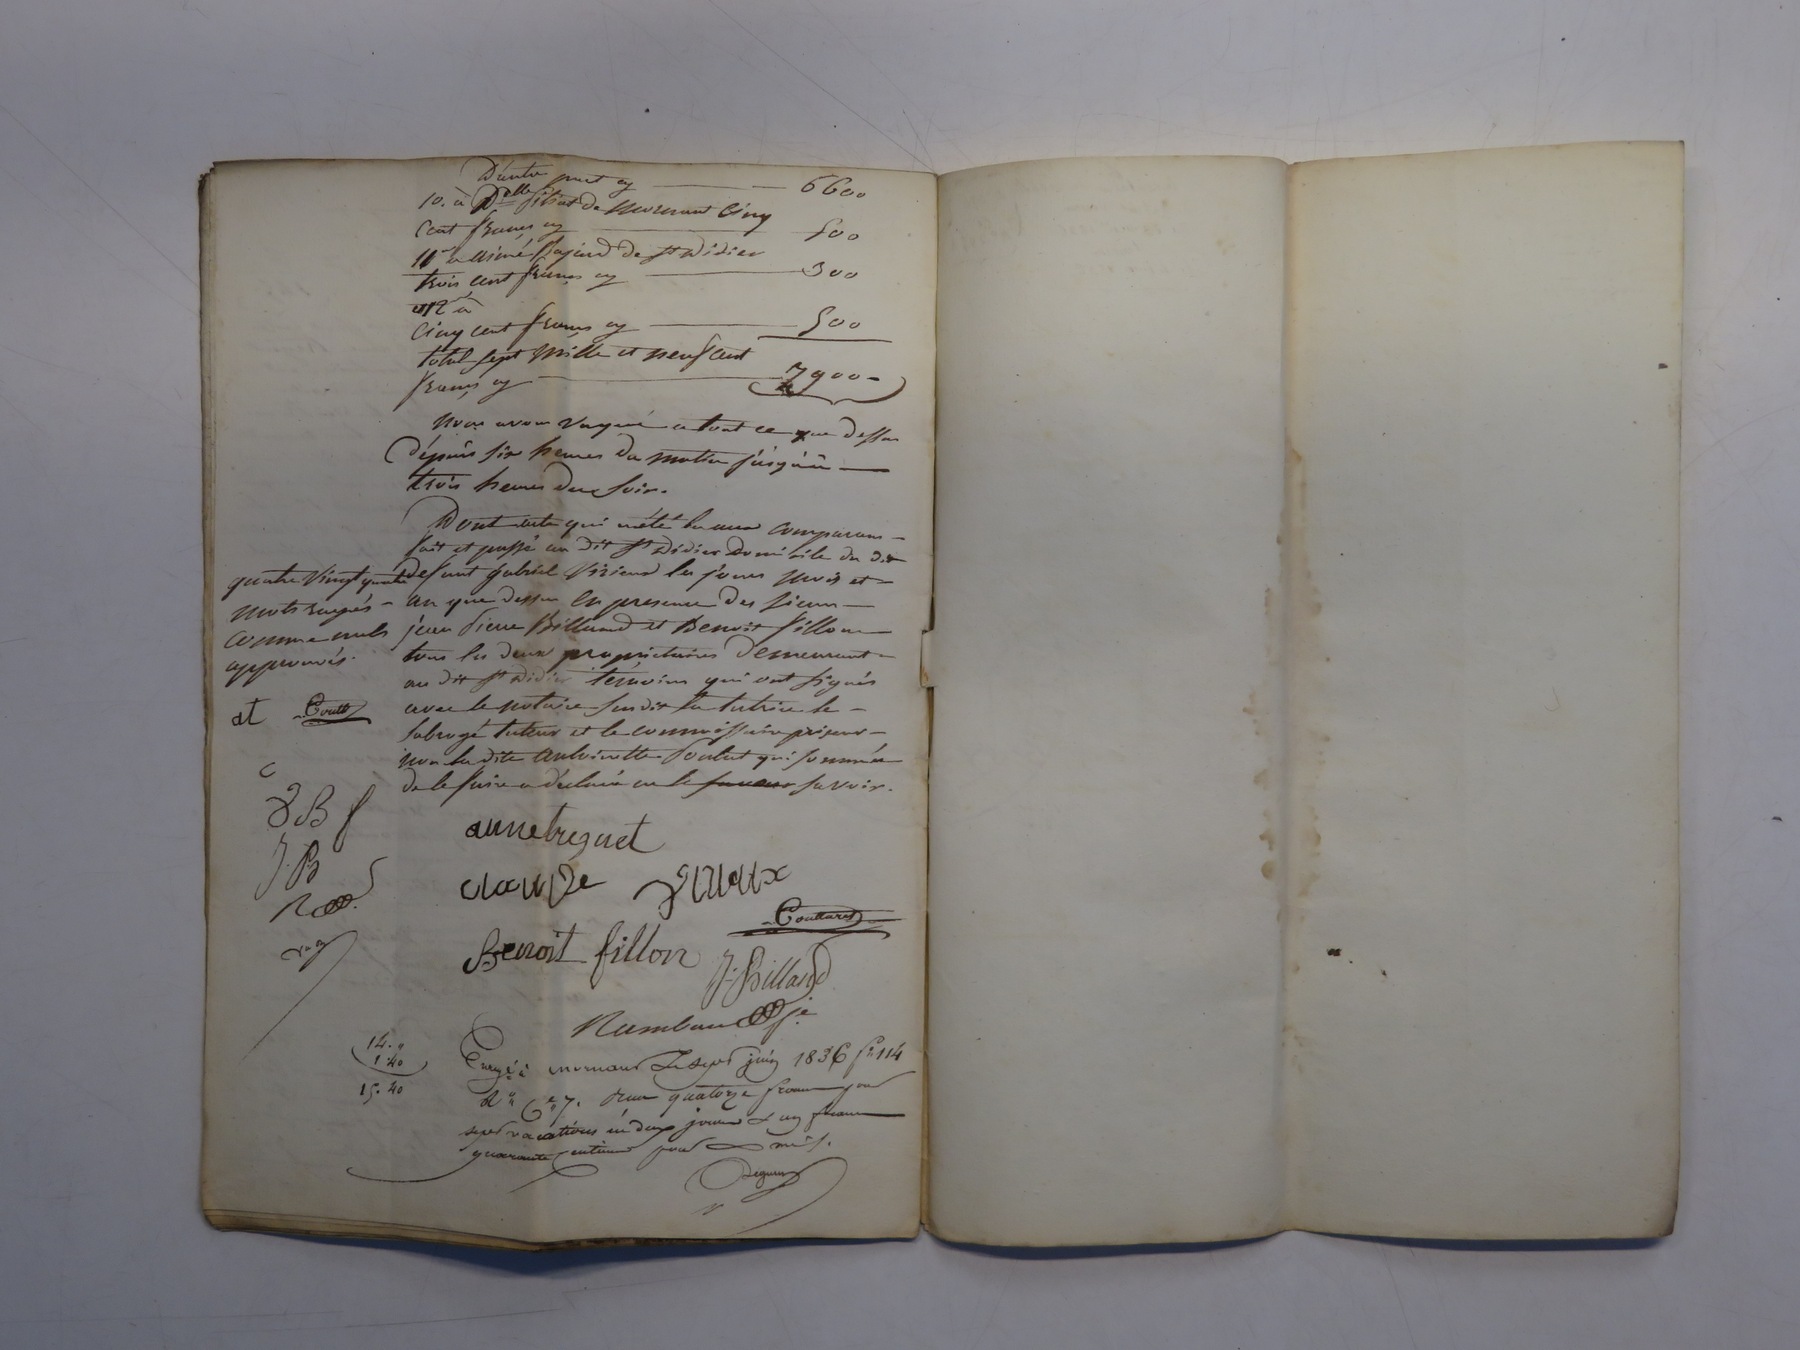 D'autre part cy 6600
10. à Delle fillot de Mornant Cinq
cent francs cy 500
11° a aimé Bajard de St Didier
trois cent francs cy 300
12° à
cinq cent francs cy 500
total sept mille et neuf cent
francs cy 7900
Nous avons vaqué a tout ce que dessus
dépuis six heures du matin jusqu'à
trois heures du soir.
Dont acte qui a été lu aux comparans
fait et passé au dit St Didier Domicile du dit
defunt gabriel les jours mois et
an que dessus en presence des sieurs
jean Pierre Billand et Benoit fillon
tous les deux propriétaires demeurant
au dit St Didier témoins qui ont signés
avec le notaire susdit la tutrice le
subrogé tuteur et le commissaire priseur
non la dite antoinette qui sommée
de le faire a déclaré ne le savoir.
quatre vingt quatre
mots rayés
comme nuls
approuvés.
at Coutt
J B f
J. B
R
anne treguet
claude
Couttaret
Benoit fillon
J. Billand
Rambaud
14. "
1.40
15. 40
Enregé à mornant Le sept juin 1836 f° 114
R° Ces 7. Reçu quatorze francs pour
sept vacations en deux jours & un franc
quarante centimes pour